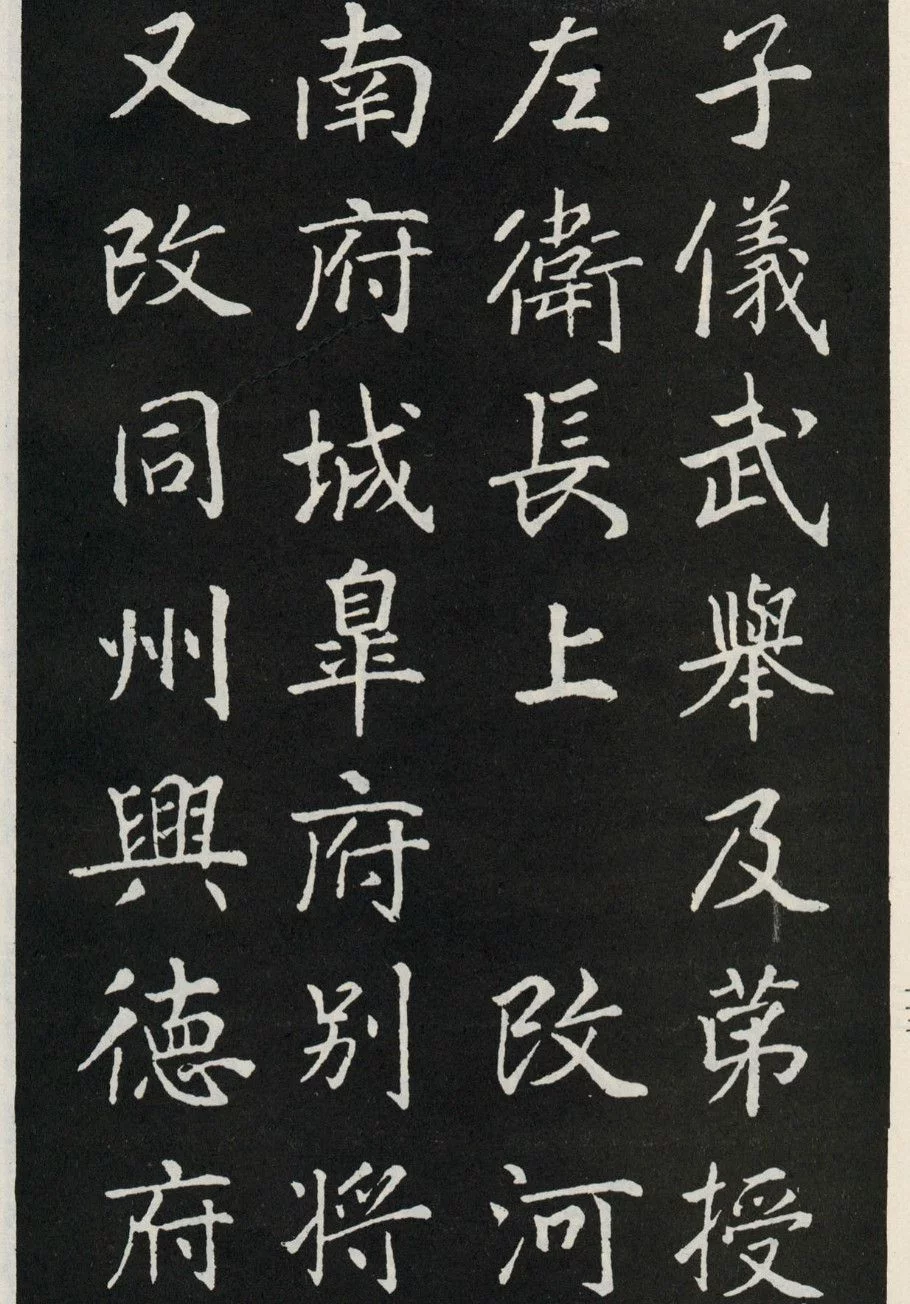 子儀武舉及苐授
左衛長上 改河
南府城皐府别将
又改同州興徳府